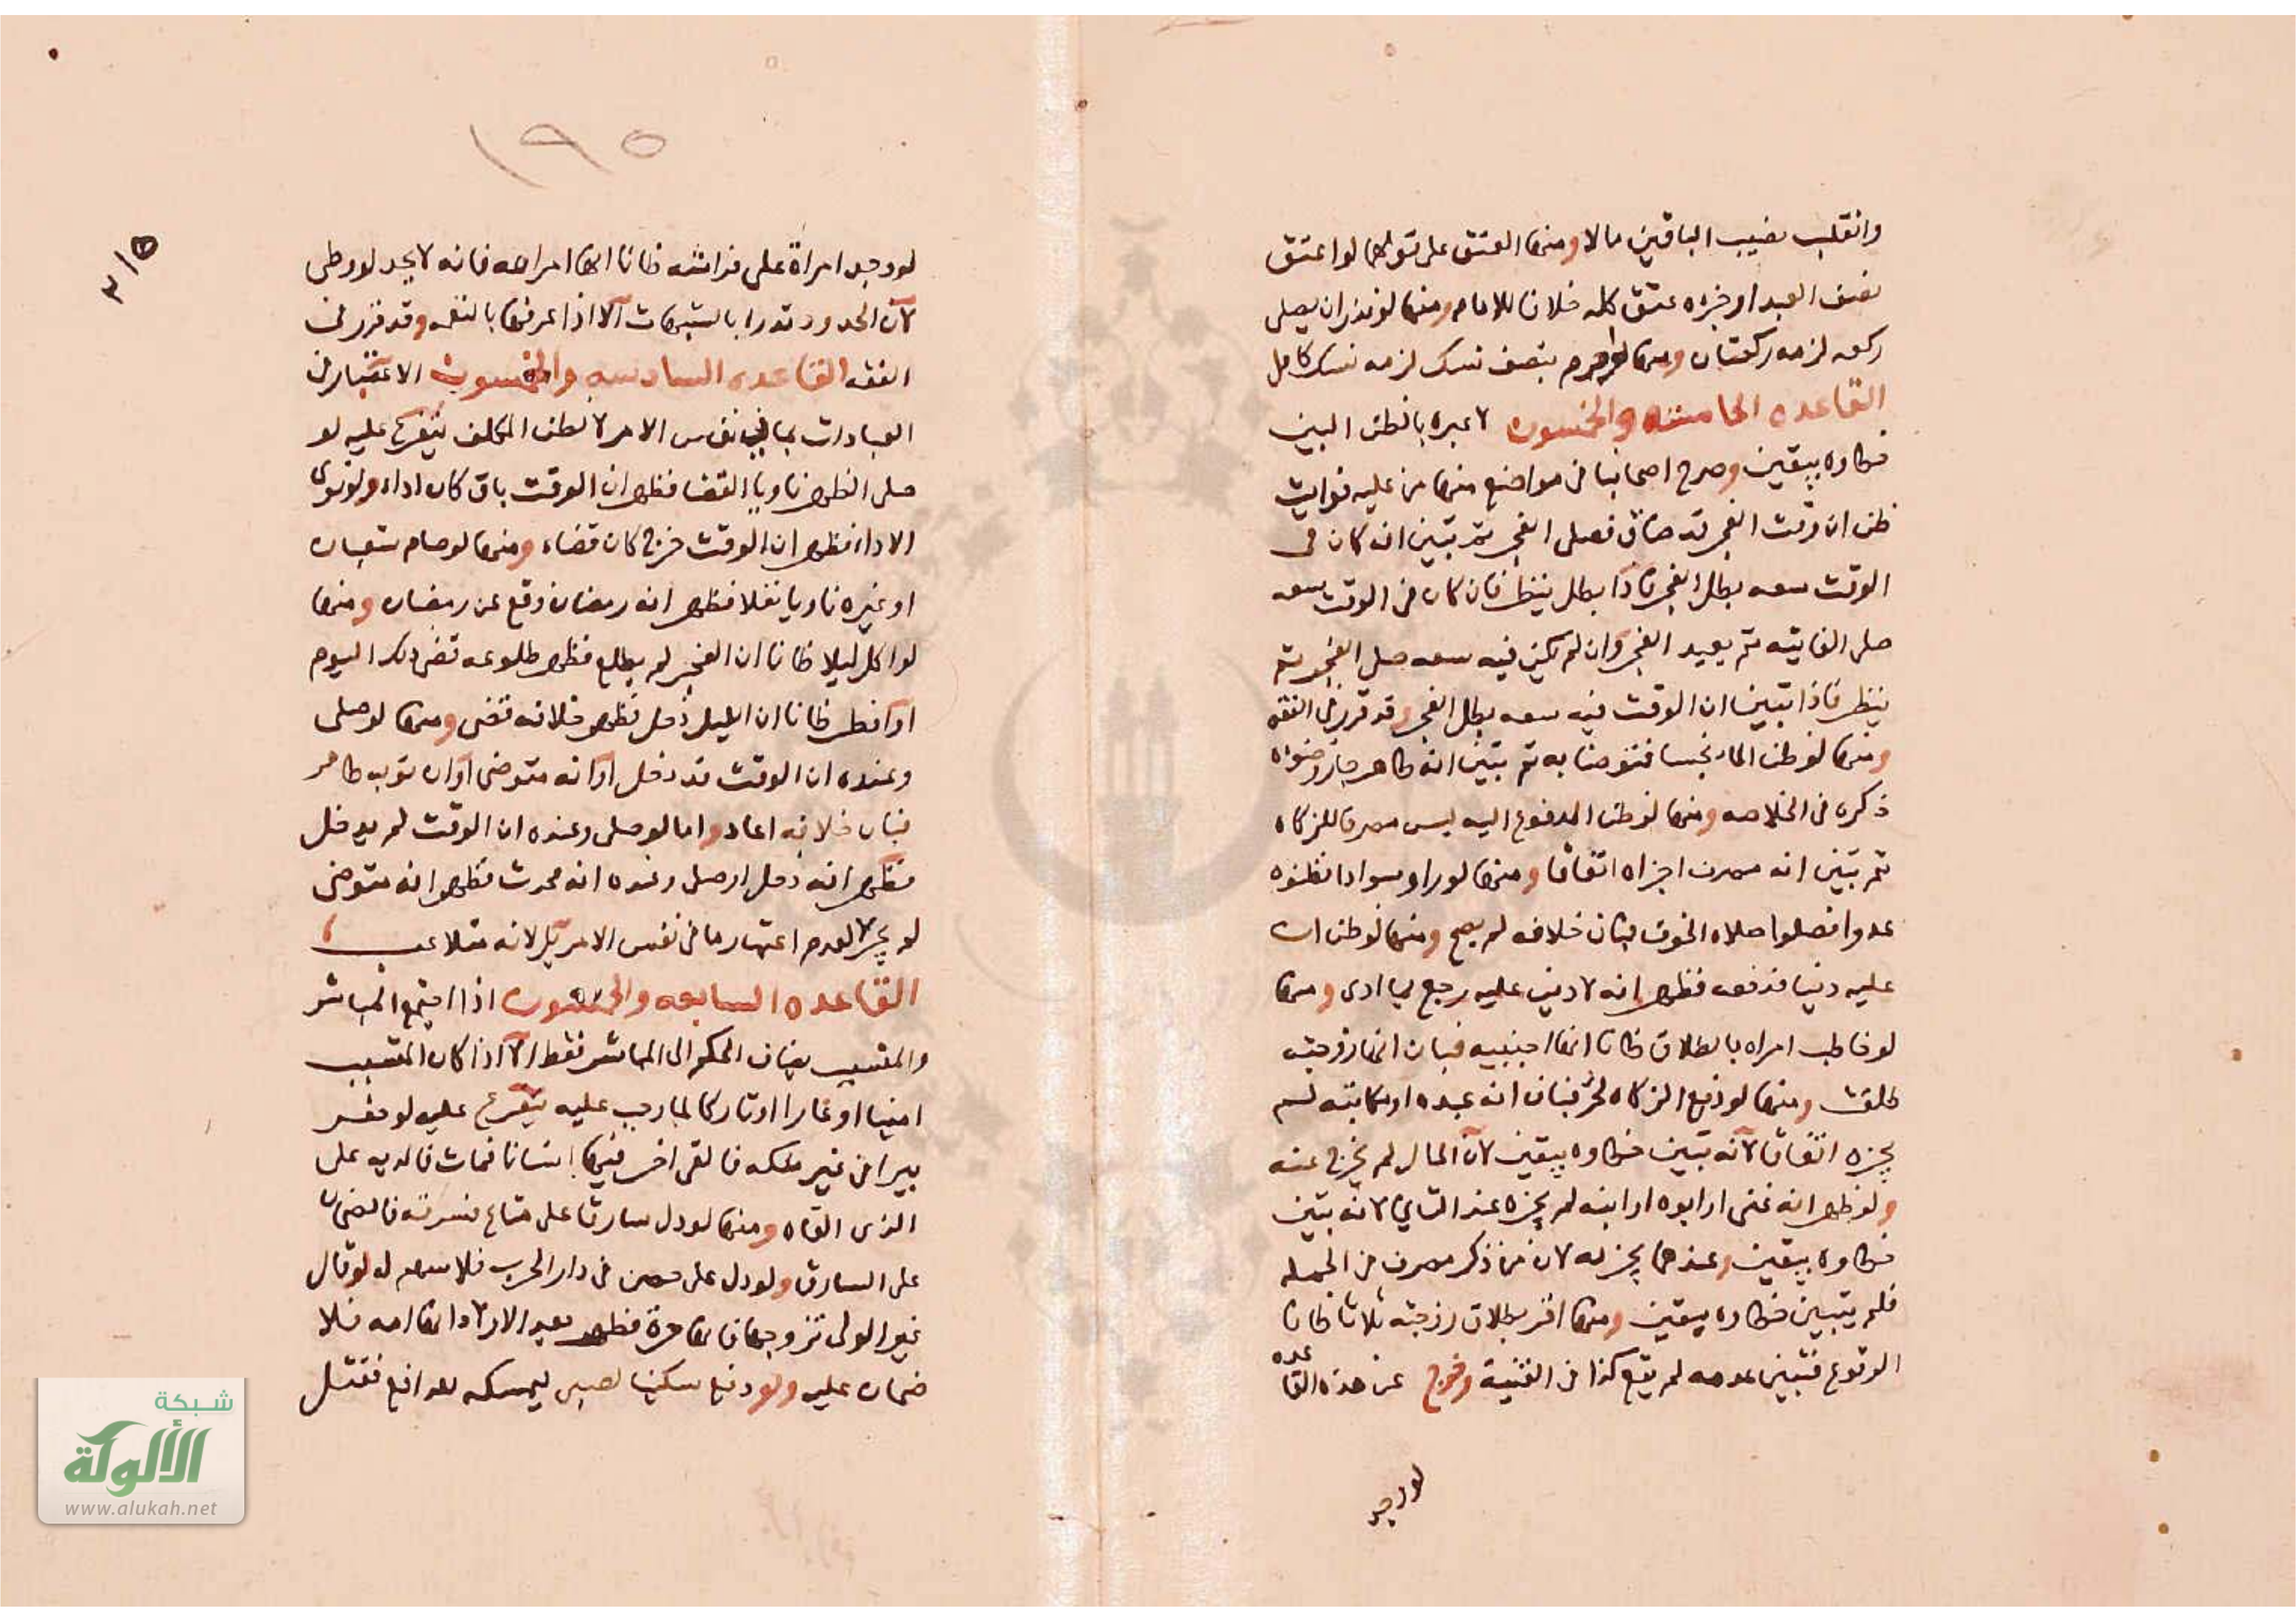 وانقلب نصيب الباقين مالا ومنها العتق على قولهما لو اعتق
نصف العبد او جزءه عتق كله خلافا للامام ومنها لو نذر ان يصلى
ركعه لزمه ركعتان ومنها لو احرم بنصف نسك لزمه نسك كامل
القاعده الخامسه والخمسون لا عبره بالظن البين
خطاوه بيقين وصرح اصحابنا فى مواضع منها من عليه فوايت
ظن ان وقت الفجر قد ضاق فصلى الفجر ثم تبين انه كان فى
الوقت سعه بطل الفجر فاذا بطل ينظر فان كان فى الوقت سعه
صلى الفايته ثم يعيد الفجر وان لم يكن فيه سعه صلى الفجر ثم
ينظر فاذا تبين ان الوقت فيه سعه بطل الفجر وقد قرر فى الفقه
ومنها لو ظن الماء نجسا فتوضا به ثم تبين انه طاهر جاز وضوئه
ذكره فى الخلاصه ومنها لو ظن المدفوع اليه ليس مصرفا للزكاه
ثم تبين انه مصرف اجزاه اتفاقا ومنها لو راو سوادا فظنوه
عدوا فصلوا صلاه الخوف فبان خلافه لم يصح ومنها لو ظن ان
عليه دينا فدفعه فظهر انه لا دين عليه رجع بما ادى ومنها
لو خاطب امراه بالطلاق ظانا انها اجنبيه فبان انها زوجته
طلقت ومنها لو دفع الزكاه لحر فبان انه عبده او مكاتبه لم
يجزه اتفاقا لانه تبين خطاوه بيقين لان المال لم يخرج عنه
ولو ظهر انه غنى او ابوه او ابنه لم يجزه عند الثانى لانه تبين
خطاوه بيقين وعندهما يجزيه لان من ذكر مصرف فى الجمله
فلم يتبين خطاوه بيقين ومنها اقر بطلاق زوجته ثلاثا ظانا
الوقوع فتبين عدمه لم يقع كذا فى القنية وخرج عن هذه القاعده
لو وجد
١٩٥
لو وجد امراة على فراشه ظانا انها امراته فانه لا يحد لو وطى
لان الحدود تدرا بالشبهات الا اذا عرفها بالنغمه وقد قرر فى
الفقه القاعده السادسه والخمسون الاعتبار فى
العبادات بما فى نفس الامر لا لظن المكلف يتفرع عليه لو
صلى الظهر ناويا القضا فظهر ان الوقت باق كان اداء ولو نوى
الاداء فظهر ان الوقت خرج كان قضاء ومنها لو صام شعبان
او غيره ناويا نفلا فظهر انه رمضان وقع عن رمضان ومنها
لو اكل ليلا ظانا ان الفجر لم يطلع فظهر طلوعه قضى ذلك اليوم
او افطر ظانا ان الليل دخل فظهر خلافه قضى ومنها لو صلى
وعنده ان الوقت قد دخل او انه متوضى او ان ثوبه طاهر
فبان خلافه اعاد واما لو صلى وعنده ان الوقت لم يدخل
فظهر انه دخل او صلى وعنده انه محدث فظهر انه متوضى
لم يجز لا لعدم اعتبار ما فى نفس الامر بل لانه متلاعب
القاعده السابعه والخمسون اذا اجتمع المباشر
والمتسبب يضاف الحكم الى المباشر فقط الا اذا كان المتسبب
امينا او غارا او تاركا لما وجب عليه يتفرع عليه لو حفر
بيرا فى غير ملكه فالقى اخر فيها انسانا فمات فالديه على
الذى القاه ومنها لو دل سارقا على متاع فسرقه فالضمان
على السارق ولو دل على حصن فى دار الحرب فلا سهم له لو قال
غير الولى تزوجها فانها حرة فظهر بعد الاولاد انها امه فلا
ضمان عليه ولو دفع سكينا لصبى ليمسكه للدافع فقتل
شبكة
الألوكة
www.alukah.net